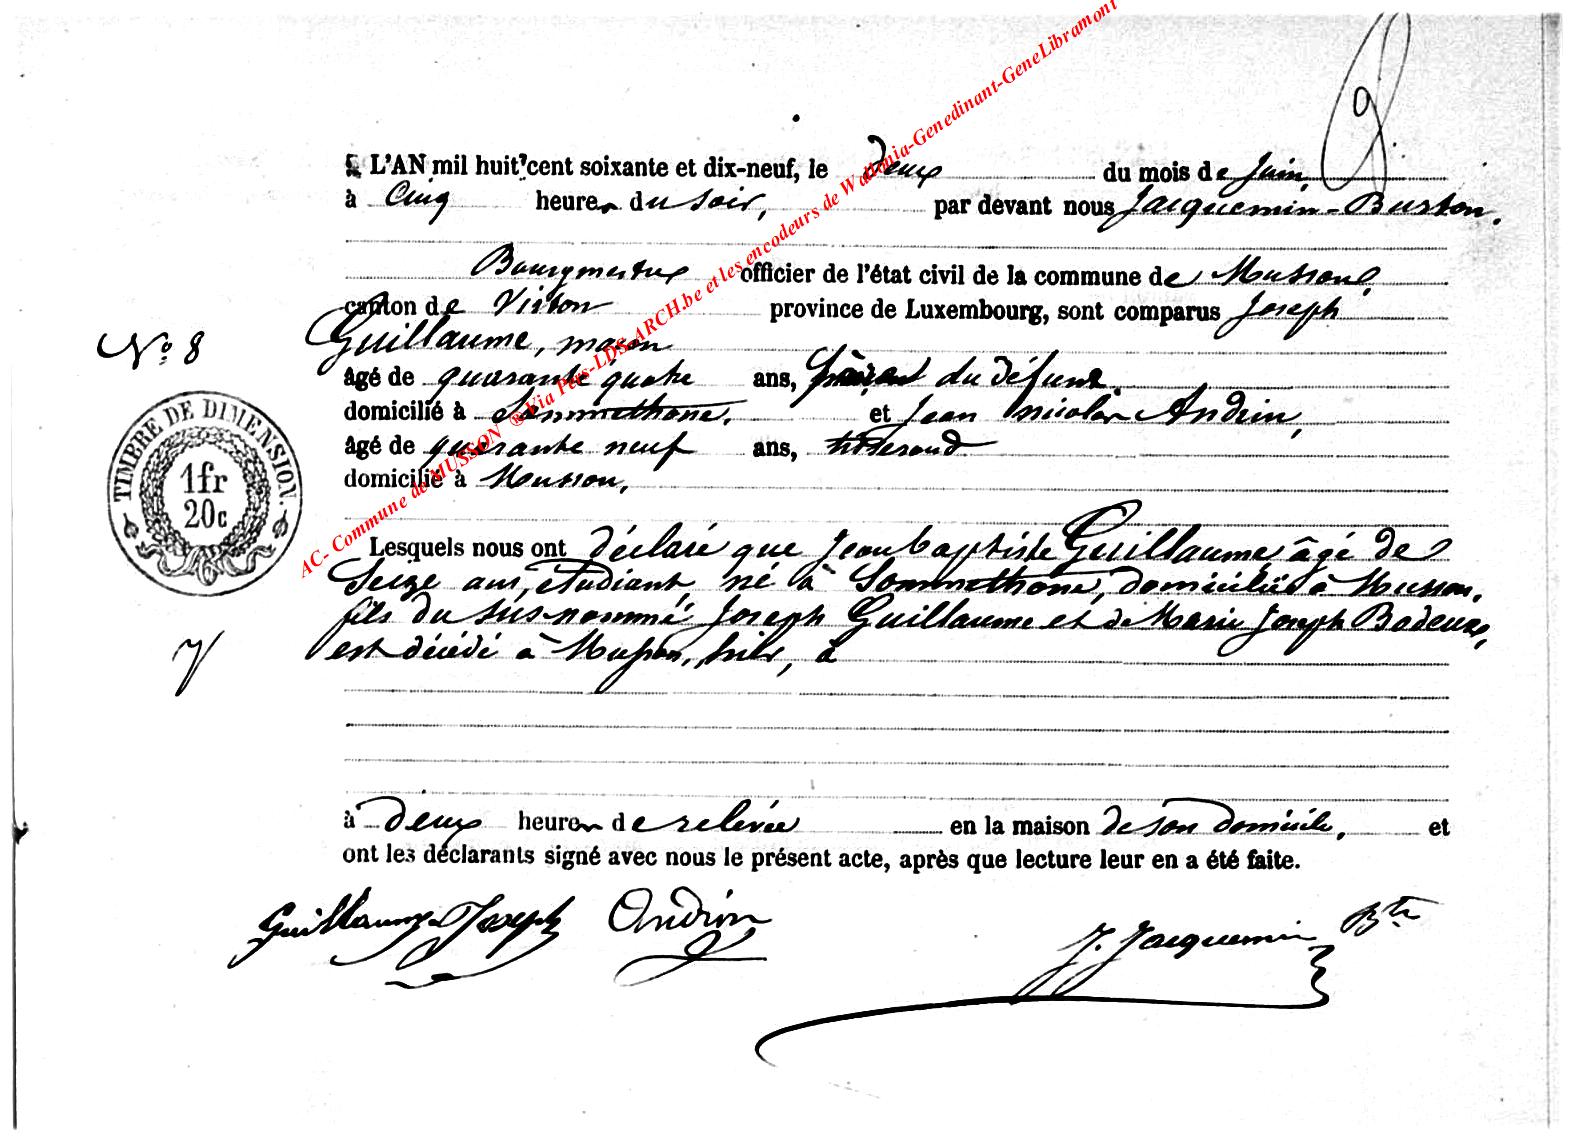 L'AN mil huit cent soixante et dix-neuf, le deux du mois de Juin,
à Cinq heures du soir, par devant nous Jacquemin-Burton,
Bourgmestre officier de l'état civil de la commune de Musson,
canton de Virton province de Luxembourg, sont comparus Joseph
Guillaume, maçon
âgé de quarante quatre ans, du défunt,
domicilié à Sommethone, et Jean nicolas Andrin,
âgé de quarante neuf ans, tisserand
domicilié à Musson,
Lesquels nous ont déclaré que Jean baptiste Guillaume, âgé de
Seize ans, étudiant, né à Sommethone, domicilié à Musson,
fils du sus-nommé Joseph Guillaume et de Marie Joseph Badeux,
est décédé à Musson, hier, à
à deux heures de relevée en la maison de son domicile, et
ont les déclarants signé avec nous le présent acte, après que lecture leur en a été faite.
Guillaume Joseph Andrin
J. Jacquemin Btn
No 8
TIMBRE DE DIMENSION.
1fr
20c
AC- Commune de MUSSON ® Via Pers-LDS-ARCH.be et les encodeurs de Wallonia-Genedinant-GeneLibramont